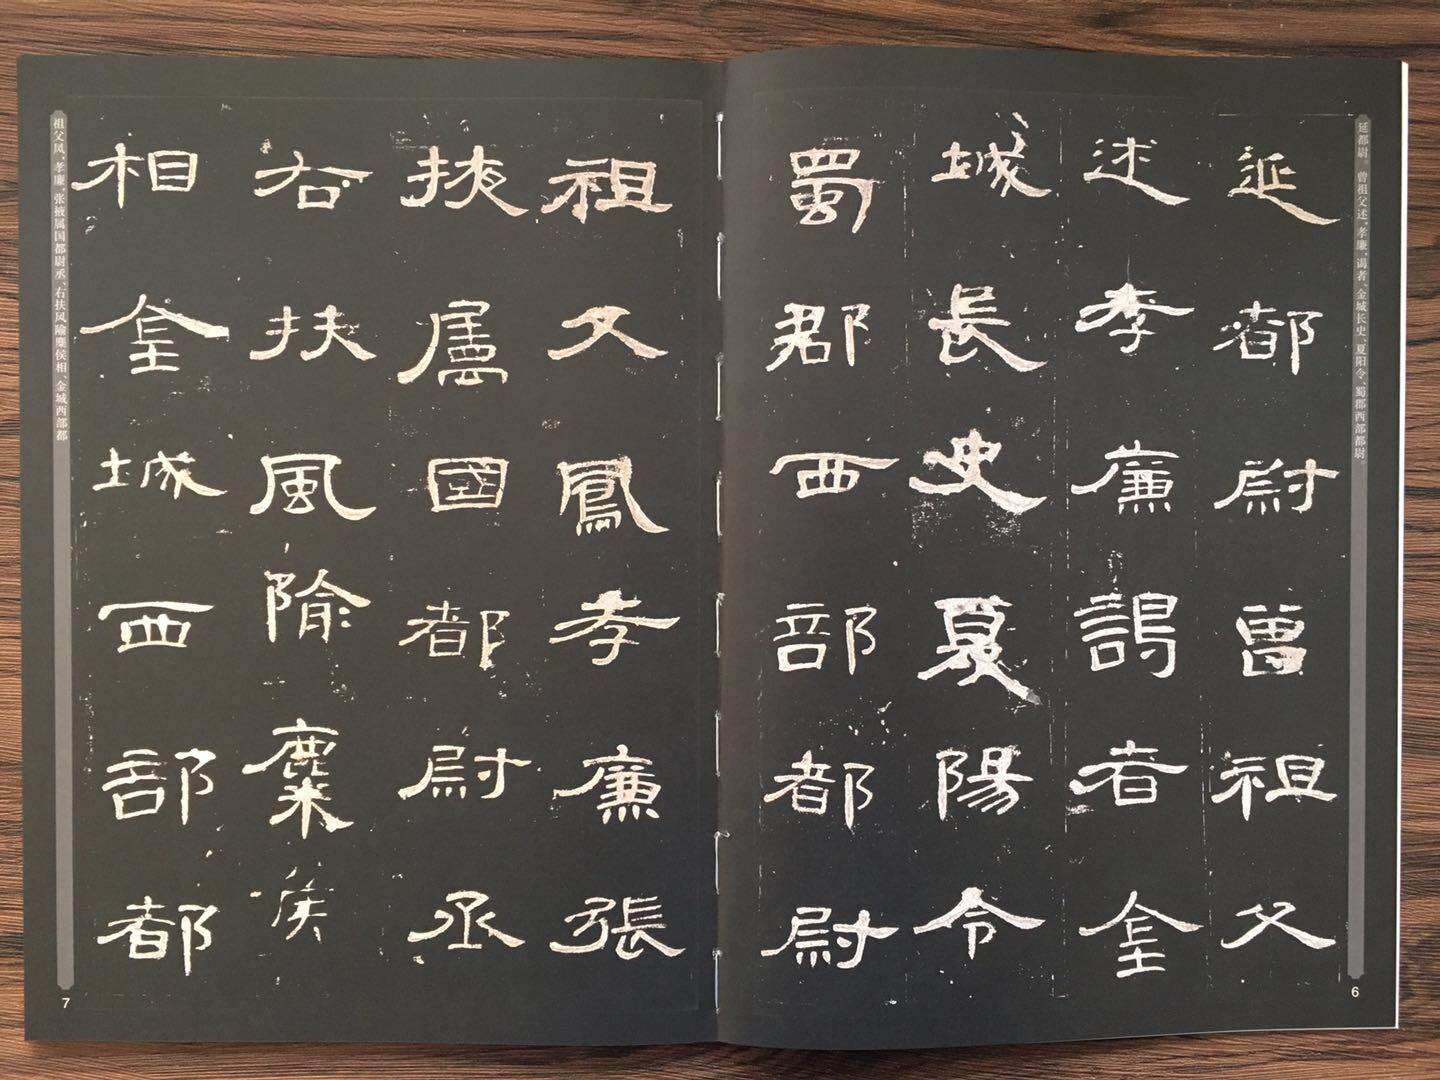 延都尉。曾祖父述,孝廉、谒者、金城长史、夏阳令、蜀郡西部都尉。
延都尉曾祖父
述孝廉謁者金
城長史夏陽令
蜀郡西部都尉
6
祖父鳳孝廉張
掖屬國都尉丞
右扶風隃麋侯
相金城西部都
祖父凤,孝廉、张掖属国都尉丞、右扶风隃麋侯相、金城西部都
7